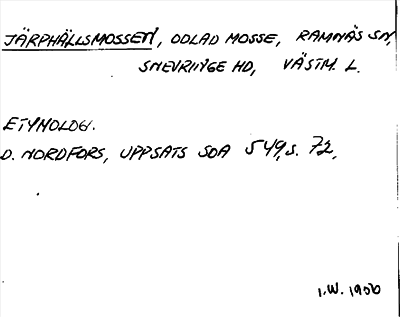 JÄRPHÄLLSMOSSEN, ODLAD MOSSE, RAMNÄS SN,
SNEVRINGE HD, VÄSTM. L.
ETYMOLOGI.
D. NORDFORS, UPPSATS SOA 549, S. 72.
I.W. 1986